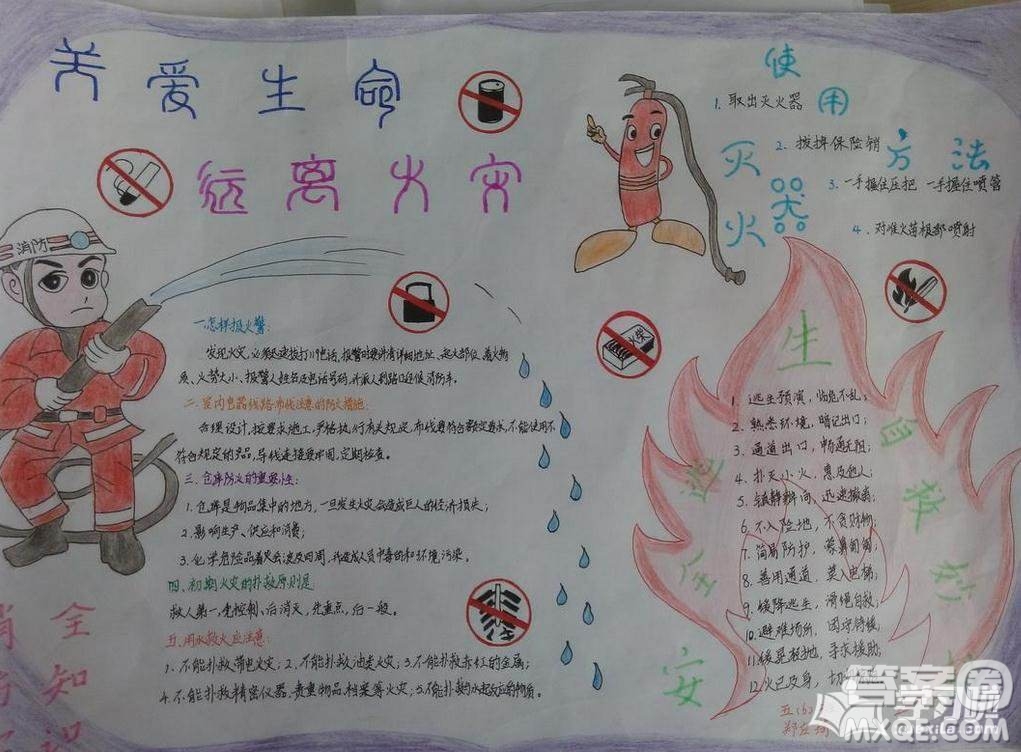 关爱生命
远离火灾
消防
一.怎样报火警:
发现火灾,必须迅速拨打119电话,报警时要讲清详细地址、起火部位、着火物
质、火势大小、报警人姓名及电话号码,并派人到路口迎候消防车。
二.室内电器线路布线注意的防火措施:
合理设计,按要求施工,严格执行有关规定,布线要符合额定要求,不能使用不
符合规定的产品,导线连接要牢固,定期检查。
三.仓库防火的重要性:
1.仓库是物品集中的地方,一旦发生火灾会造成巨大的经济损失;
2.影响生产、供应和消费;
3.化学危险品着火会波及四周,并造成人员中毒伤和环境污染。
四.初期火灾的扑救原则是
救人第一,先控制,后消灭,先重点,后一般。
五.用水救火应注意:
1.不能扑救带电火灾;2.不能扑救油类火灾;3.不能扑救赤红的金属;
4.不能扑救精密仪器,贵重物品,档案等火灾;5.不能扑救与水起反应的物质。
使用灭火器方法
1.取出灭火器
2.拔掉保险销
3.一手握住压把 一手握住喷管
4.对准火苗根部喷射
火柴
安全逃生自救
1.逃生预演,临危不乱;
2.熟悉环境,暗记出口;
3.通道出口,畅通无阻;
4.扑灭小火,惠及他人;
5.镇静辨向,迅速撤离;
6.不入险地,不贪财物;
7.简易防护,蒙鼻匍匐;
8.善用通道,莫入电梯;
9.缓降逃生,滑绳自救;
10.避难场所,固守待援;
11.缓晃轻抛,寻求援助;
12.火已及身,切
全
知
识
答案圈
MXQE.COM